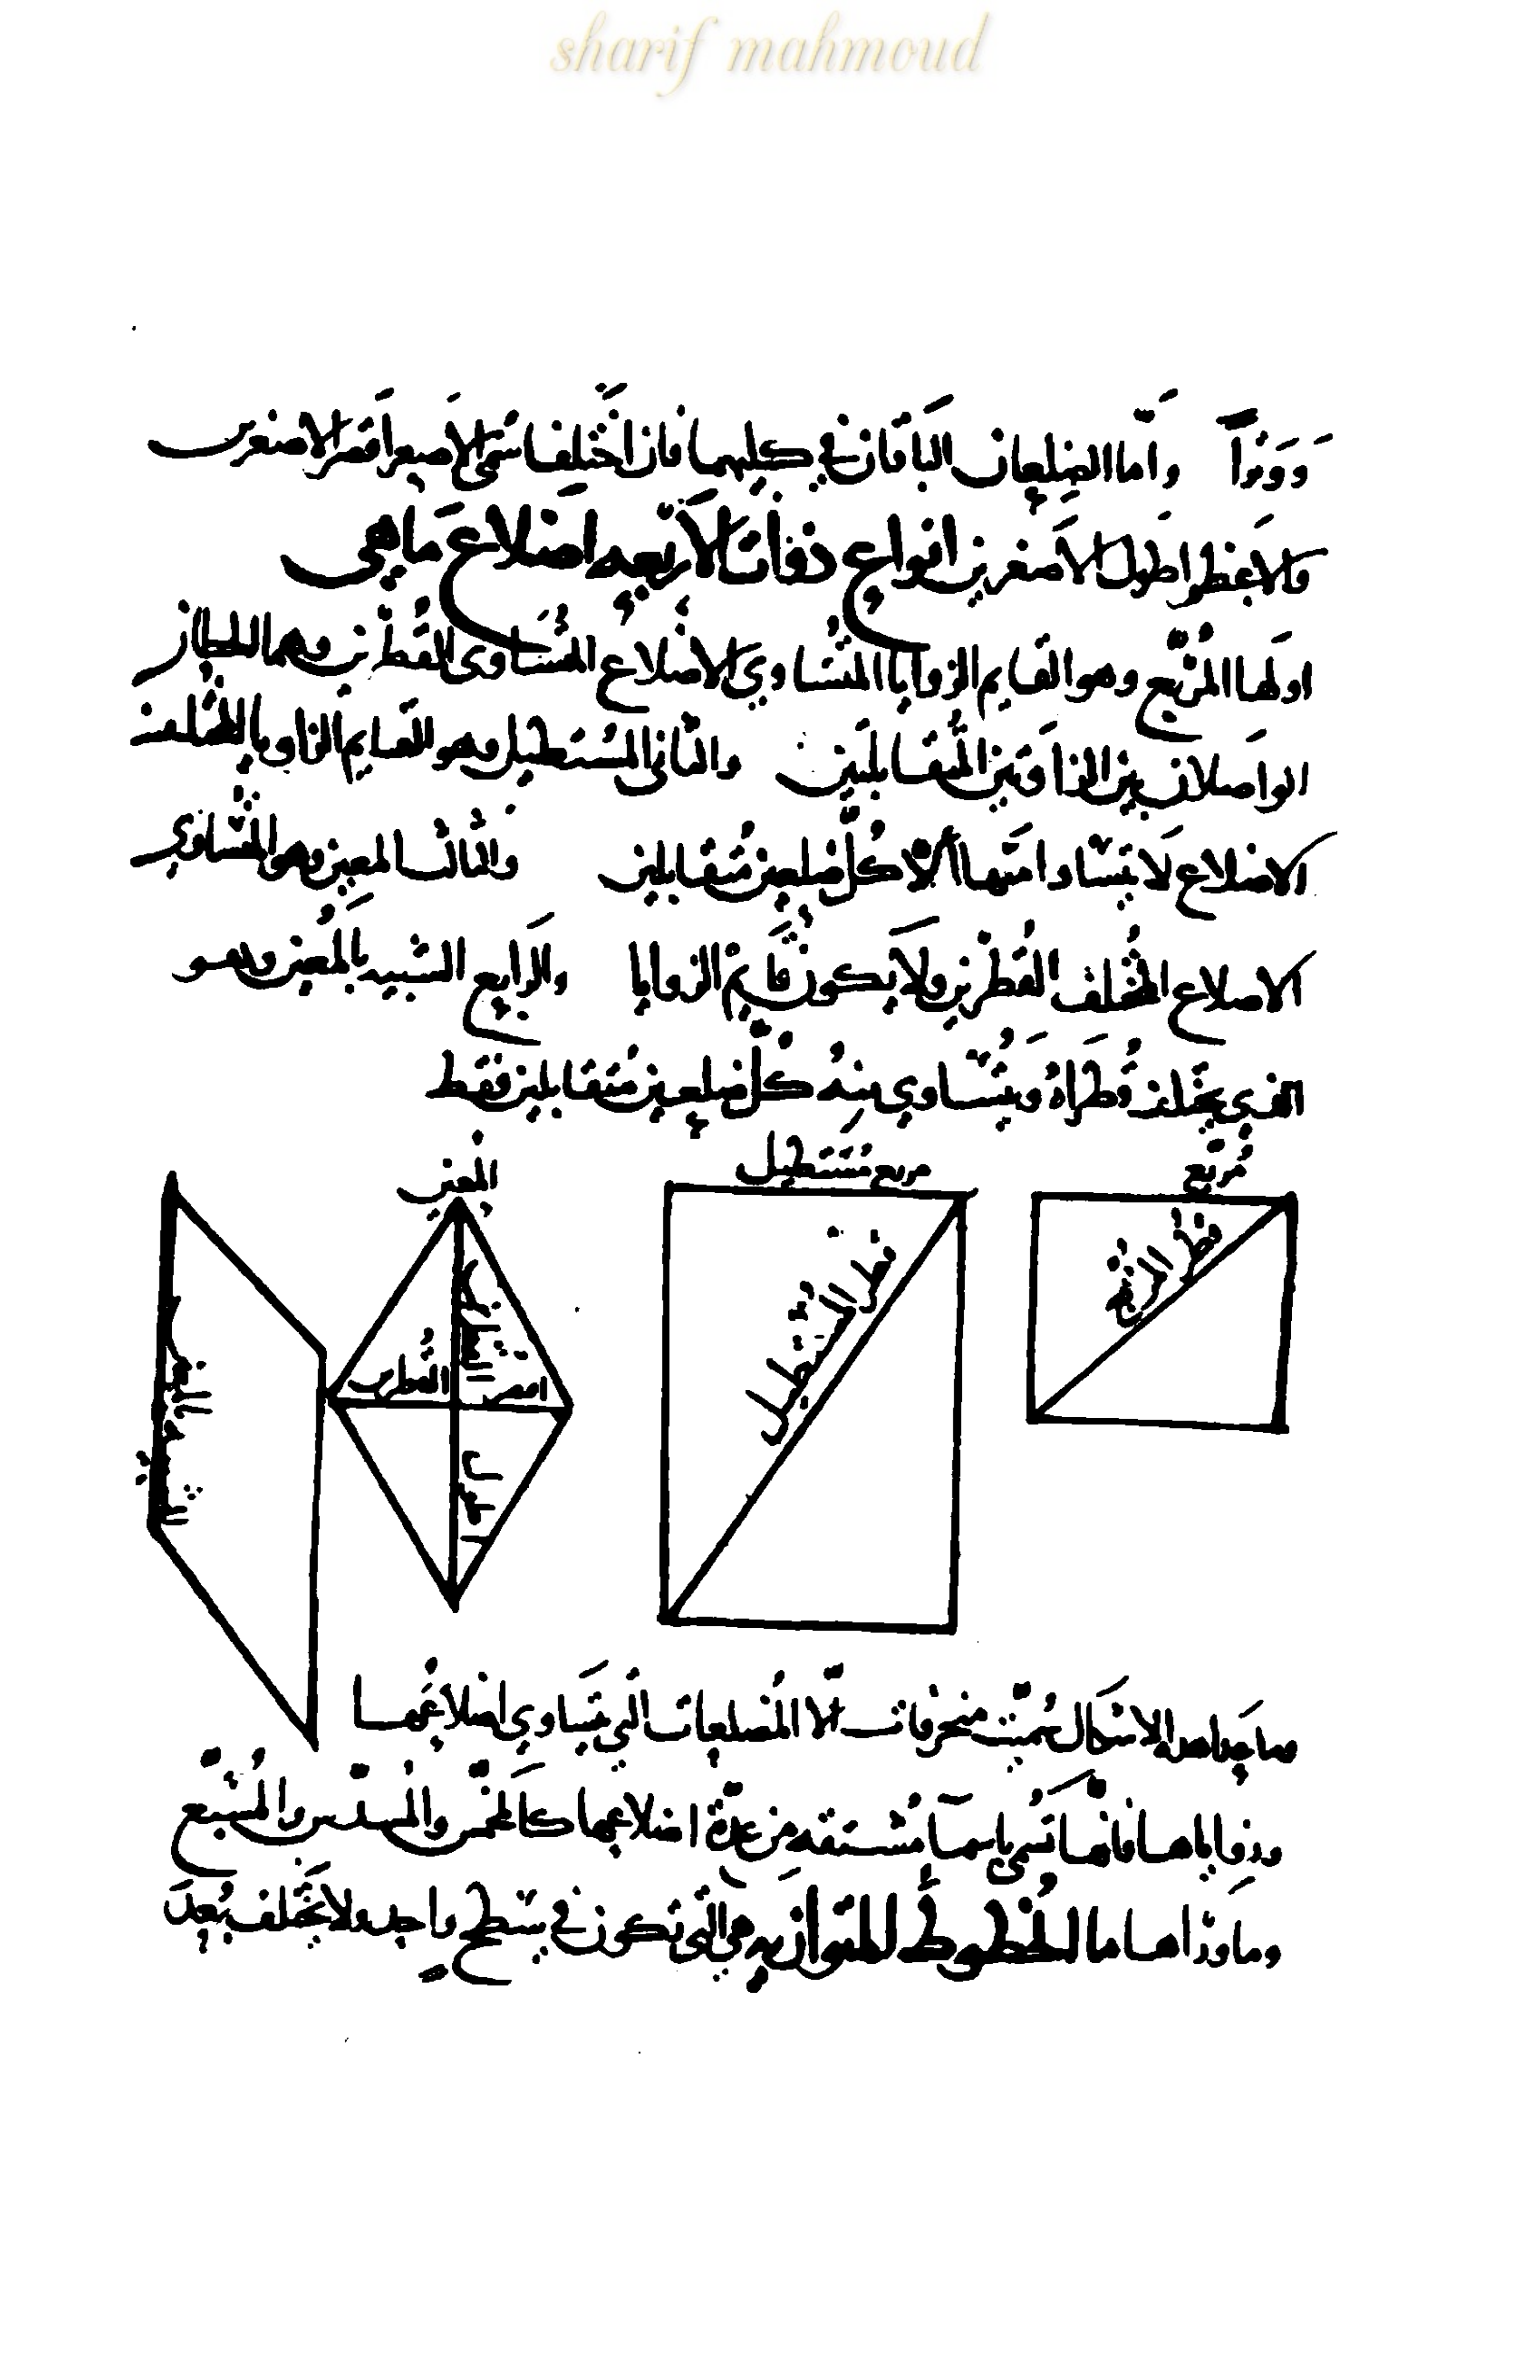 sharif mahmoud
ووترا واما الضلعان الباقان في كليهما فان اختلفا سمى الاصغر اقصر الاصغرين
والاعظم اطول الاصغرين انواع ذوات الاربعه اضلاع ماهي
اولها المربع وهو القايم الزوايا المتساوي الاضلاع المتساوى القطرين وهما اللحاز
الواصلان بين الزاويتين المتقابلتين والثاني المستطيل وهو القايم الزاويا المختلف
الاضلاع لا يتساوا منها الا كل ضلعين متقابلين والثالث المعين وهو المتساوي
الاضلاع المختلف القطرين ولا يكون قايم الزوايا والرابع الشبيه بالمعين وهو
الذي يختلف قطراه ويتساوي منه كل ضلعين متقابلين فقط
مربع
مربع مستطيل
المعين
قطر المربع
قطر المستطيل
اقصر القطرين
اطول القطرين
الشبيه بالمعين
وما عدا هذه الاشكال سميت منحرفات الا المضلعات التي تتساوي اضلاعها
وزواياها فانها تسمى باسما مشتقه من عدة اضلاعها كالمخمس والمسدس والمسبع
وما وراها ما الخطوط المتوازيه هي التي تكون في سطح واحد ولا يختلف بعد